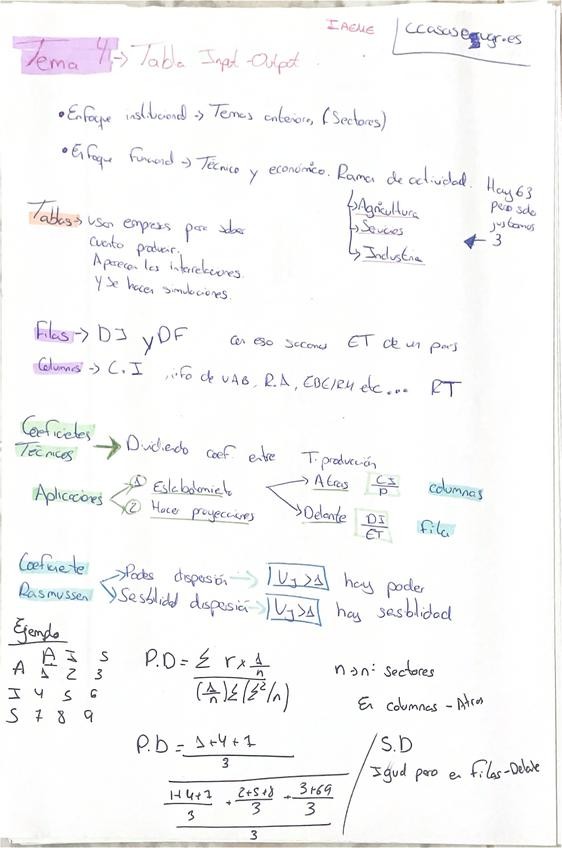 IAEME
ccasas@ugr.es
Tema 4 -> Tabla Input-Output.
• Enfoque institucional -> Temas anteriores (Sectores)
• Enfoque Funcional -> Técnico y económico. Ramas de actividad. Hay 63
pero solo
usamos
3
Agricultura
Servicios
Industria
Tablas -> usan empresas para saber
cuanto producir.
Aparecen las interrelaciones.
Y se hacen simulaciones.
Filas -> DI y DF con eso sacamos ET de un país
Columnas -> C.I info de VAB, R.A, EBE/RM etc... RT
Coeficietes
Técnicos -> Dividiendo coef. entre T. producción
Aplicaciones
① Eslabotamieto
-> Atras CI/P columnas
-> Delante DI/ET fila
② Hacer proyecciones
Coeficiete
Rasmussen
-> Poder dispersión -> |Uj>1| hay poder
-> Sesiblidad dispersió -> |Uj>1| hay sesiblidad
Ejemplo
A I S
A 1 2 3
I 4 5 6
S 7 8 9
P.D = Σ r x 1/n
(1/n) Σ (Σ²/n)
n -> nº sectores
En columnas - Atras
P.D = 1+4+7
3
1+4+7 / 3 + 2+5+8 / 3 + 3+6+9 / 3
3
S.D
Igual pero en Filas - Delate